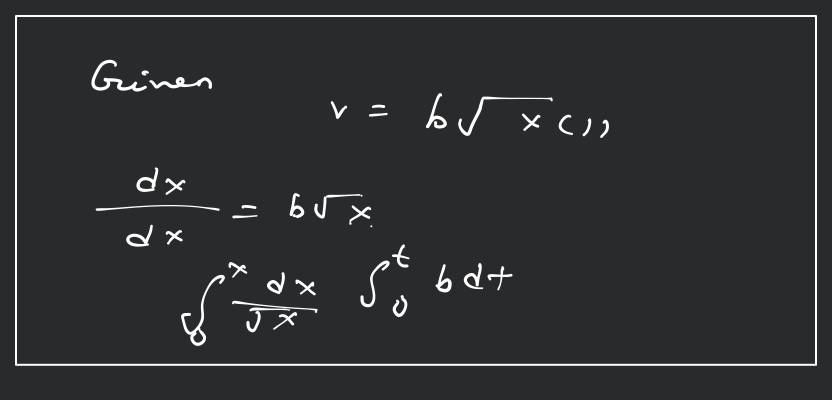 Grinen
v = b√x (1)
dx/dx = b√x
∫₀ˣ dx/√x ∫₀ᵗ b dt